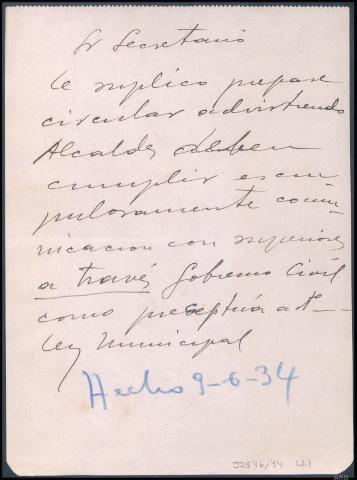 Sr Secretario
Le suplico prepare
circular advirtiendo
Alcaldes deben
cumplir escru
pulosamente comu-
nicacion con superiores
a través Gobierno Civil
como preceptúa
Ley Municipal
Hecho 9-6-34
22546/44 (2)
ARO